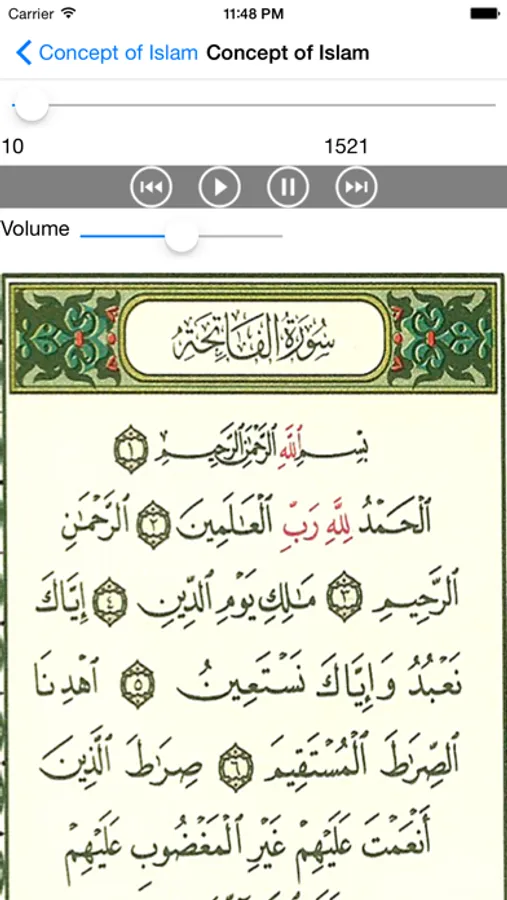 Carrier 11:48 PM
Concept of Islam Concept of Islam
10 1521
Volume
سُورَةُ الفَاتِحَةِ
بِسْمِ ٱللَّهِ ٱلرَّحْمَٰنِ ٱلرَّحِيمِ ١
ٱلْحَمْدُ لِلَّهِ رَبِّ ٱلْعَٰلَمِينَ ٢ ٱلرَّحْمَٰنِ
ٱلرَّحِيمِ ٣ مَٰلِكِ يَوْمِ ٱلدِّينِ ٤ إِيَّاكَ
نَعْبُدُ وَإِيَّاكَ نَسْتَعِينُ ٥ ٱهْدِنَا
ٱلصِّرَٰطَ ٱلْمُسْتَقِيمَ ٦ صِرَٰطَ ٱلَّذِينَ
أَنْعَمْتَ عَلَيْهِمْ غَيْرِ ٱلْمَغْضُوبِ عَلَيْهِمْ